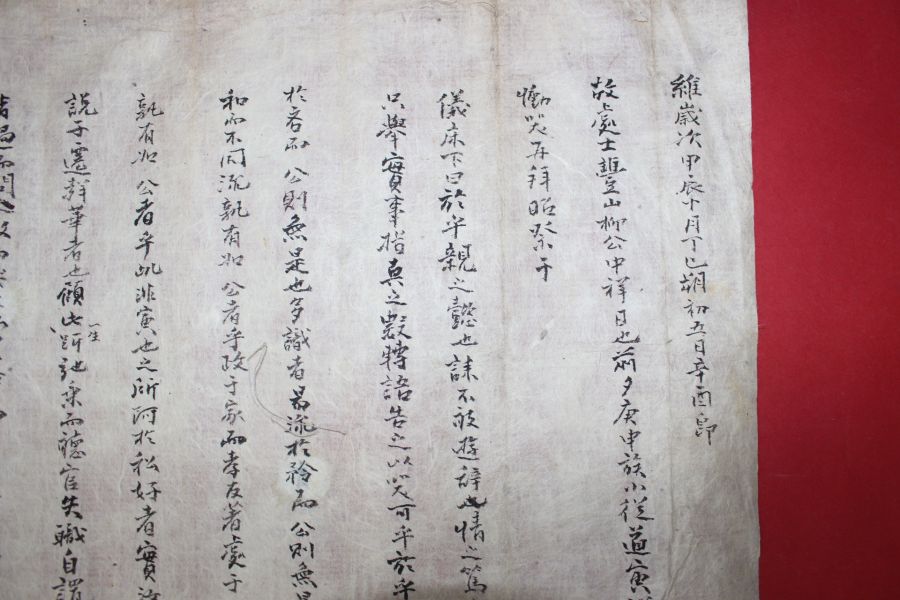 維歲次甲辰十月丁巳朔初五日辛酉卽
故處士豐山柳公中祥日也前夕庚申族小從道寅
慟哭再拜昭祭于
儀床下曰於乎親之懿也誄不敢遊辭也情之篤
只擧實事措哀之數轉語告之以哭可乎於乎
於吝而 公則無是也多識者易流於矜而 公則無是
和而不同流孰有如 公者乎政于家而孝友著處于
孰有如 公者乎此非寅也之所阿於私好者實
說于遷 華者也顧此一生 弛乘而 官失職自謂